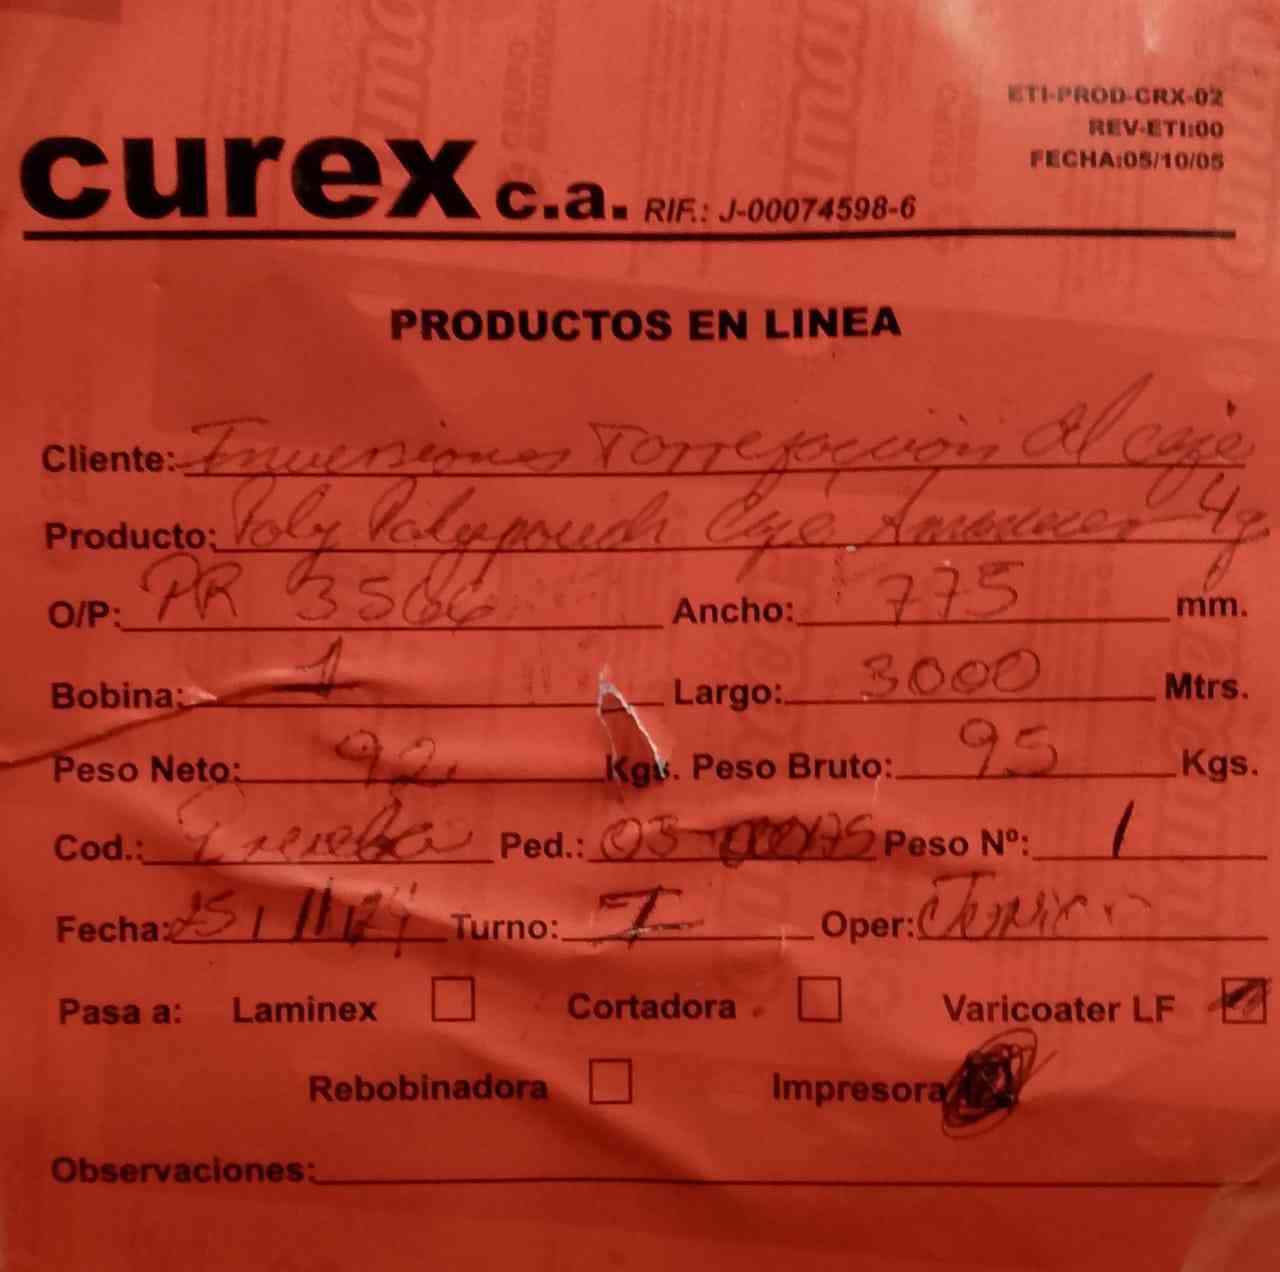 ETI-PROD-CRX-02
REV-ETI:00
FECHA:05/10/05
curex c.a. RIF.: J-00074598-6
PRODUCTOS EN LINEA
Cliente: Inversiones Torrefacción Del café
Producto: Poly Polypouch Café Amanecer 4g
O/P: PR 3566 Ancho: 775 mm.
Bobina: 1 Largo: 3000 Mtrs.
Peso Neto: 92 Kgs. Peso Bruto: 95 Kgs.
Cod.: Prueba Ped.: 03- Peso Nº: 1
Fecha: 25/11/24 Turno: I Oper:
Pasa a: Laminex Cortadora Varicoater LF
Rebobinadora Impresora
Observaciones: